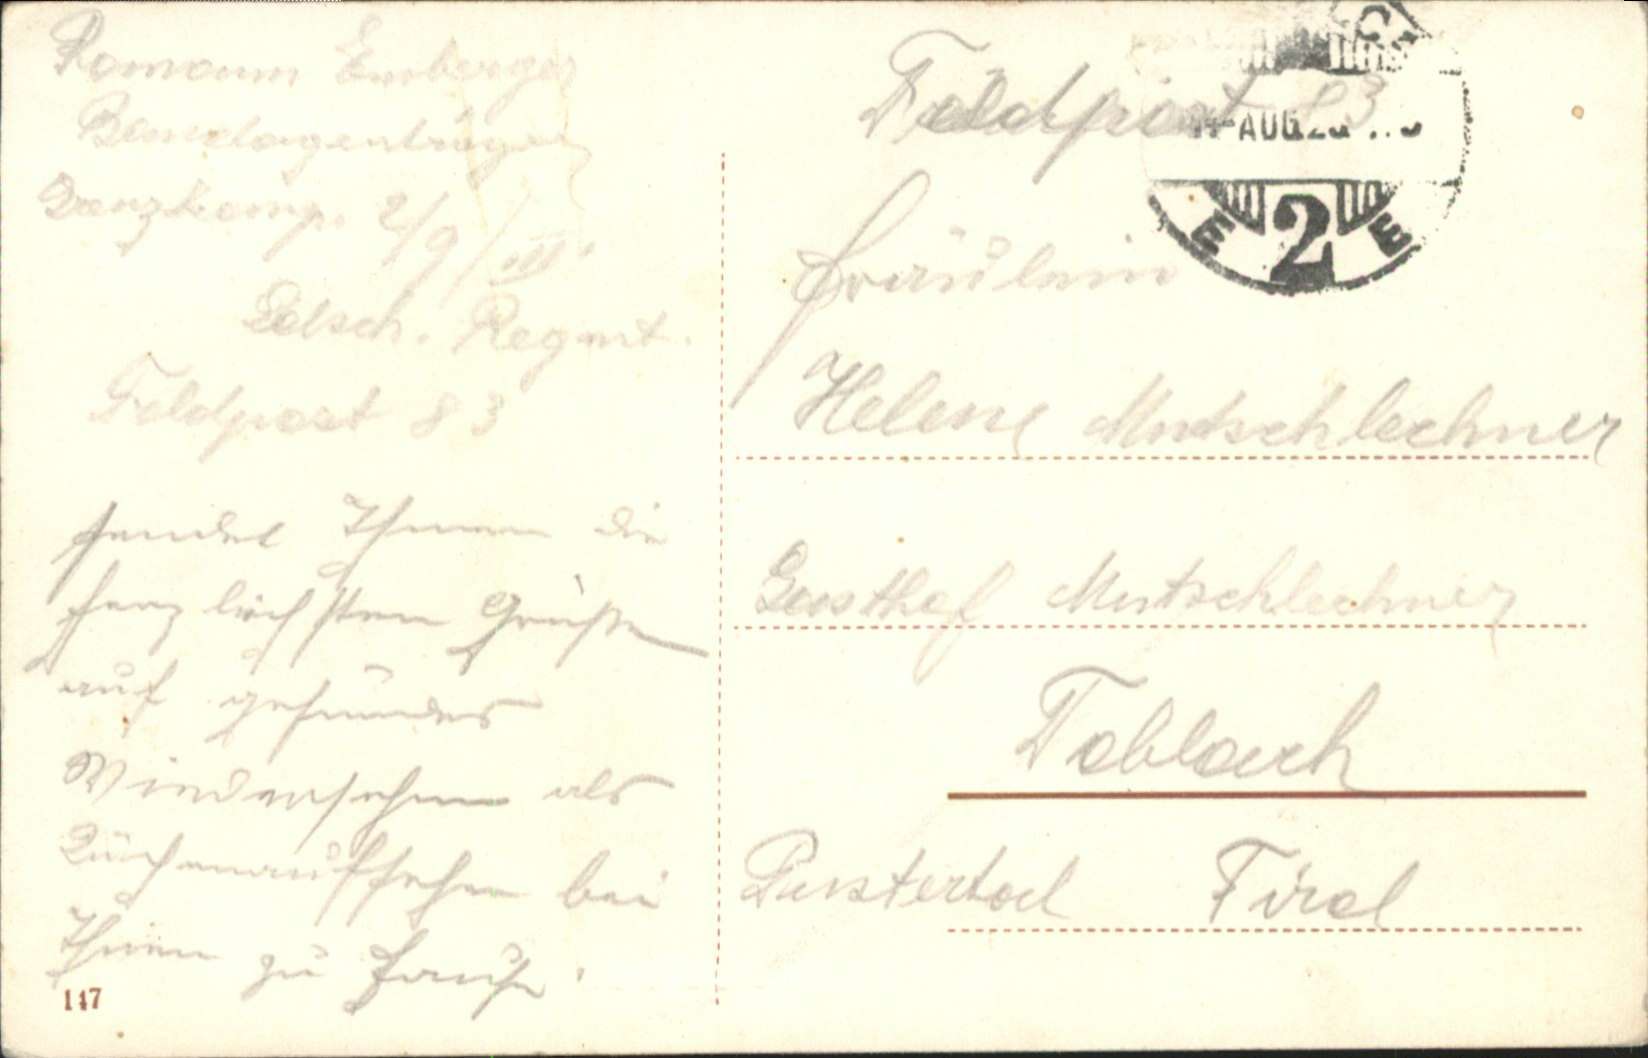 Romann Emberger
Bandagenträger
Ganzkomp. 2/9/III.
Ldsch. Regmt.
Feldpost 83
sendet Ihnen die
herzlichsten Grüße
auf gesundes
Wiedersehen als
bei
Ihnen zu Hause.
147
Feldpost 83
Fräulein
Helene Mutschlechner
Gasthof Mutschlechner
Toblach
Pustertal Tirol
AUG
E 2 E